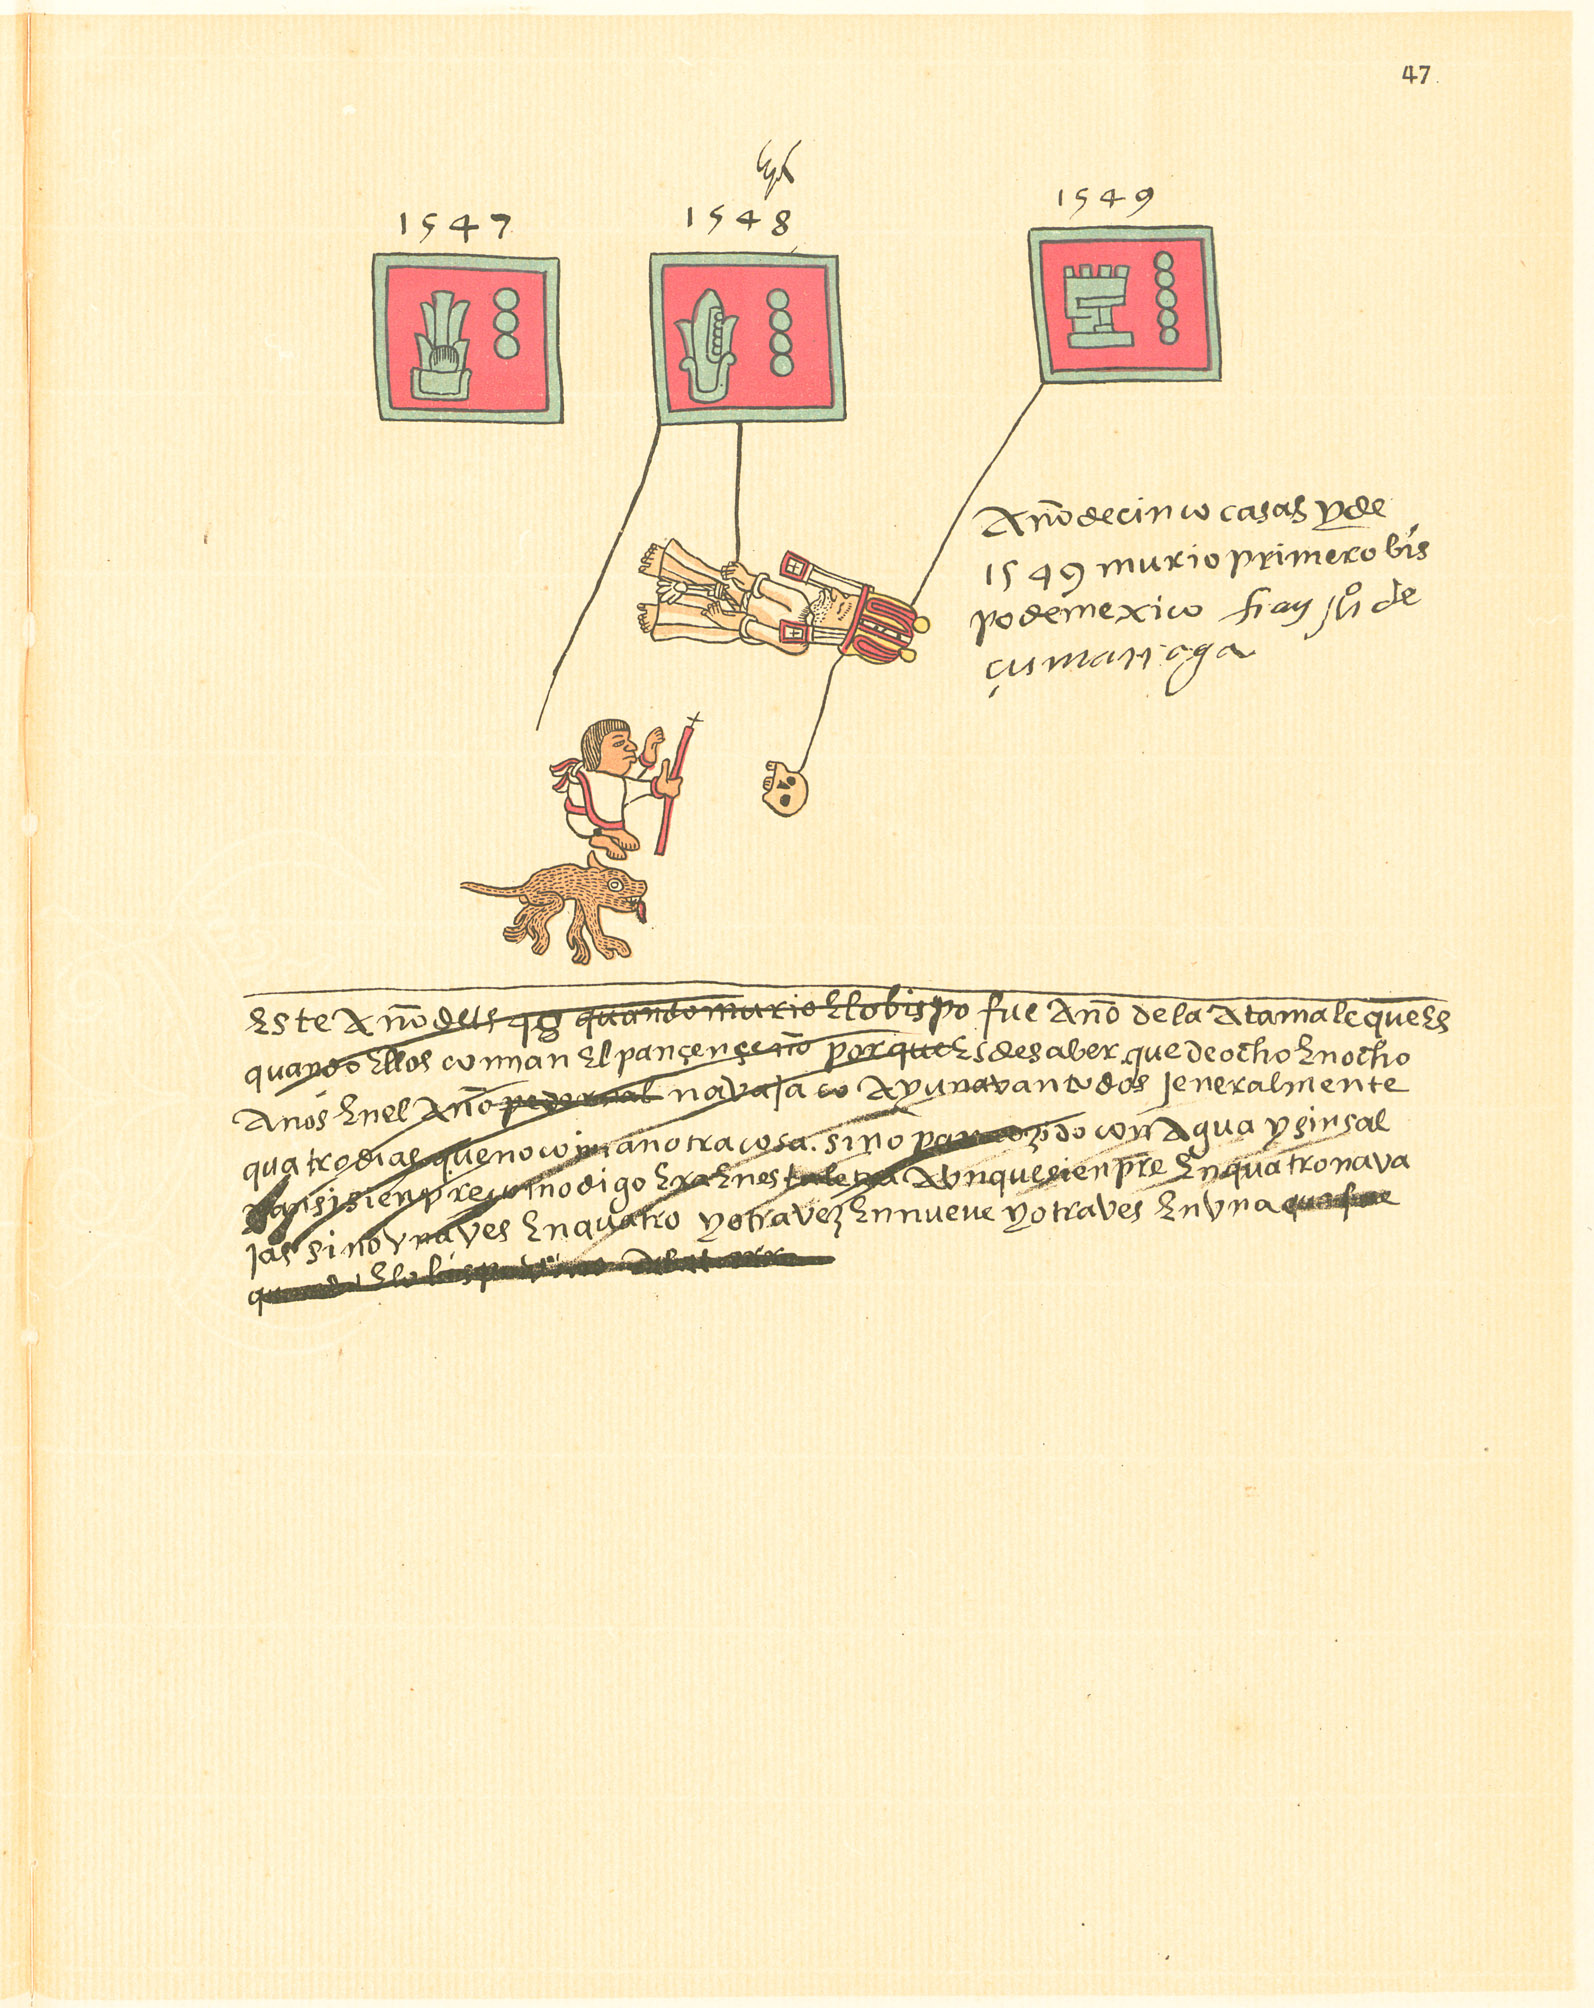 47
1547
1548
1549
Año de cinco casas y de
1549 murio primero bis
po de mexico fray juº de
çumarraga
Este Año de quando murio El obispo fue Año de la Atamal que Es
quando Ellos comian El pan çençeño porque Es de saber que de ocho En ocho
Anos En el Año pedernal navaja o Ayunavan todos jeneralmente
quatro dias que no comian otra cosa. sino pan cozido con Agua y sin sal
sienpre como digo Era En esta letra Aunque sienpre En quatro nava
jas sino una ves En quatro y otra vez En nueve y otra ves En una
El obispo